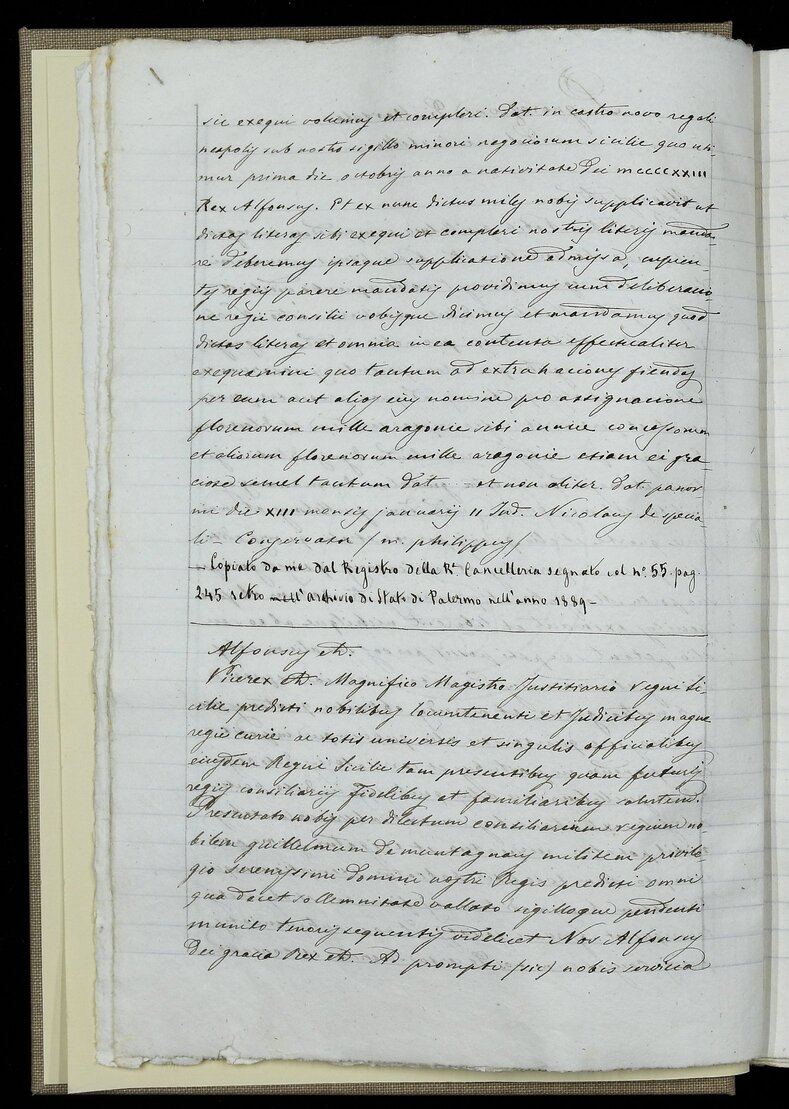 sic exequi volumus et compleri. Dat. in castro novo regali
neapolis sub nostro sigillo minori negociorum sicilie quo uti-
mur prima die octobris anno a nativitate Dei MCCCCXXIII
Rex Alfonsus. Et ex nunc dictus miles nobis supplicavit ut
dictas literas sibi exequi et compleri nostris literis manda-
re deberemus ipsaque supplicatione admissa, cupien-
tes regiis parere mandatis providimus cum deliberacio-
ne regii consilii vobisque dicimus et mandamus quod
dictas literas et omnia in ea contenta effectualiter
exequamini quo tantum ad extrahaciones fiendas
per eum aut alios eius nomine pro assignacione
florenorum mille aragonie sibi annue concessorum
et aliorum florenorum mille aragonie etiam ei gra-
ciose semel tantum dat. et non aliter. Dat. panor
mi die XIII mensis januarii II Ind. Nicolaus de specia-
li - Conservator / m. philippus /
– Copiato da me dal Registro della R. Cancelleria segnato col nº 55. pag.
245 retro nell'archivio di Stato di Palermo nell'anno 1889 –
Alfonsus etc.
Vicerex etc. Magnifico Magistro Justitiario regni si-
cilie predicti nobilibus locumtenenti et Judicibus magne
regie curie ac totis universis et singulis officialibus
eiusdem Regni Sicilie tam presentibus quam futuris
regiis consiliariis fidelibus et familiaribus salutem.
Presentato nobis per dilectum consiliarium regium no-
bilem guillelmum de muntagnans militem privile
gio serenissimi domini nostri Regis predicti omni
qua decet sollemnitate vallato sigilloque pendenti
munito tenoris sequentis videlicet Nos Alfonsus
Dei gracia Rex etc. Ad prompti (sic) nobis servicia